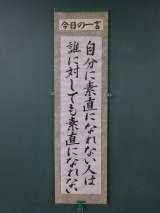 今日の一言
自分に素直になれない人は
誰に対しても素直になれない